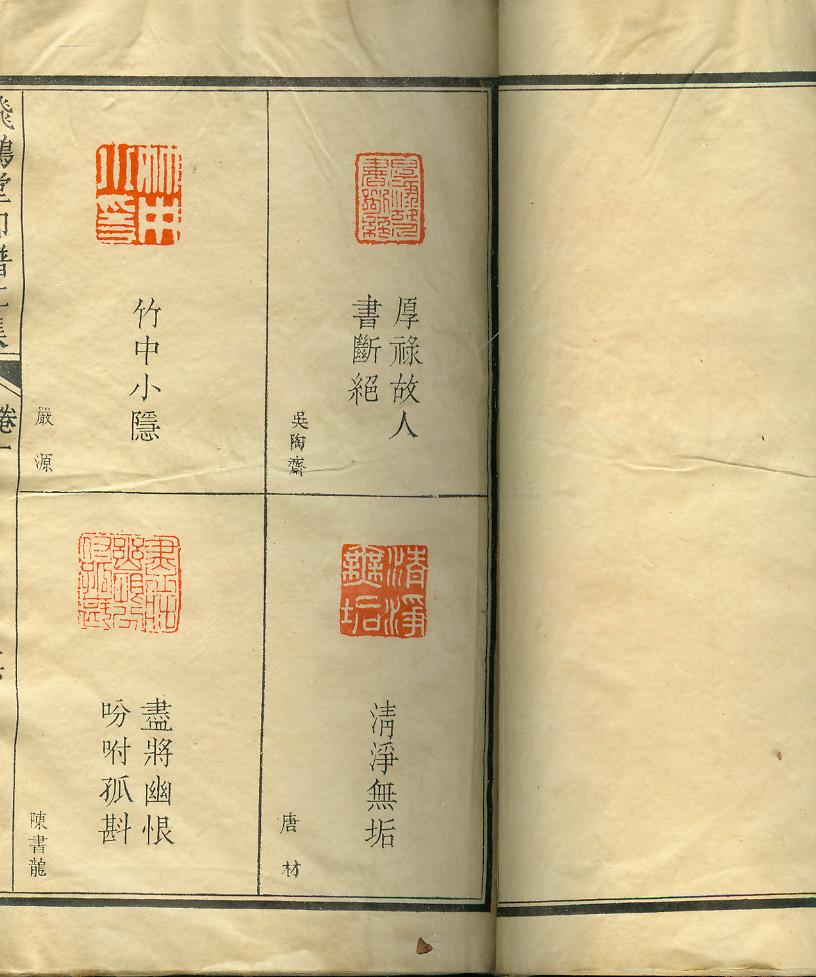 厚祿故人
書斷絕
吳陶齋
清淨無垢
清淨無垢
唐材
竹中小隱
竹中小隱
嚴源
盡將幽恨
吩咐孤斟
陳書龍
飛鴻堂印譜
卷一